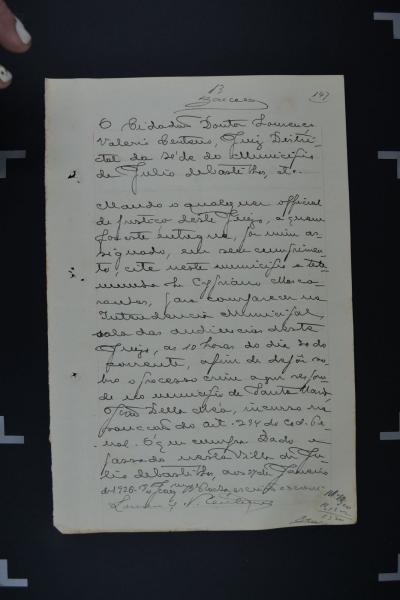 13
147
O Cidadão Doutor Lourenço
Valerio Caetano, Juiz Distri-
ctal da séde do Municipio
de Julio de Castilhos, etc.
Mando a qualquer official
de justiça deste Juizo, a quem
for este entregue, por mim as-
signado, em seu cumprimen-
to, cite neste municipio a teste-
munha Cypriano Masca-
renhas, para comparecer na
Intendencia Municipal,
sala das audiencias deste
Juizo, as 10 horas do dia 30 do
corrente, afim de depôr so-
bre o processo crime a que respon-
de no municipio de Santa Maria
João Della Méa, incurso na
sancção do art. 294 do Cod. Pe-
nal. O que cumpra. Dado e
passado nesta Villa de Ju-
lio de Castilhos, aos de Janeiro
de 1926. escrivão escrevi